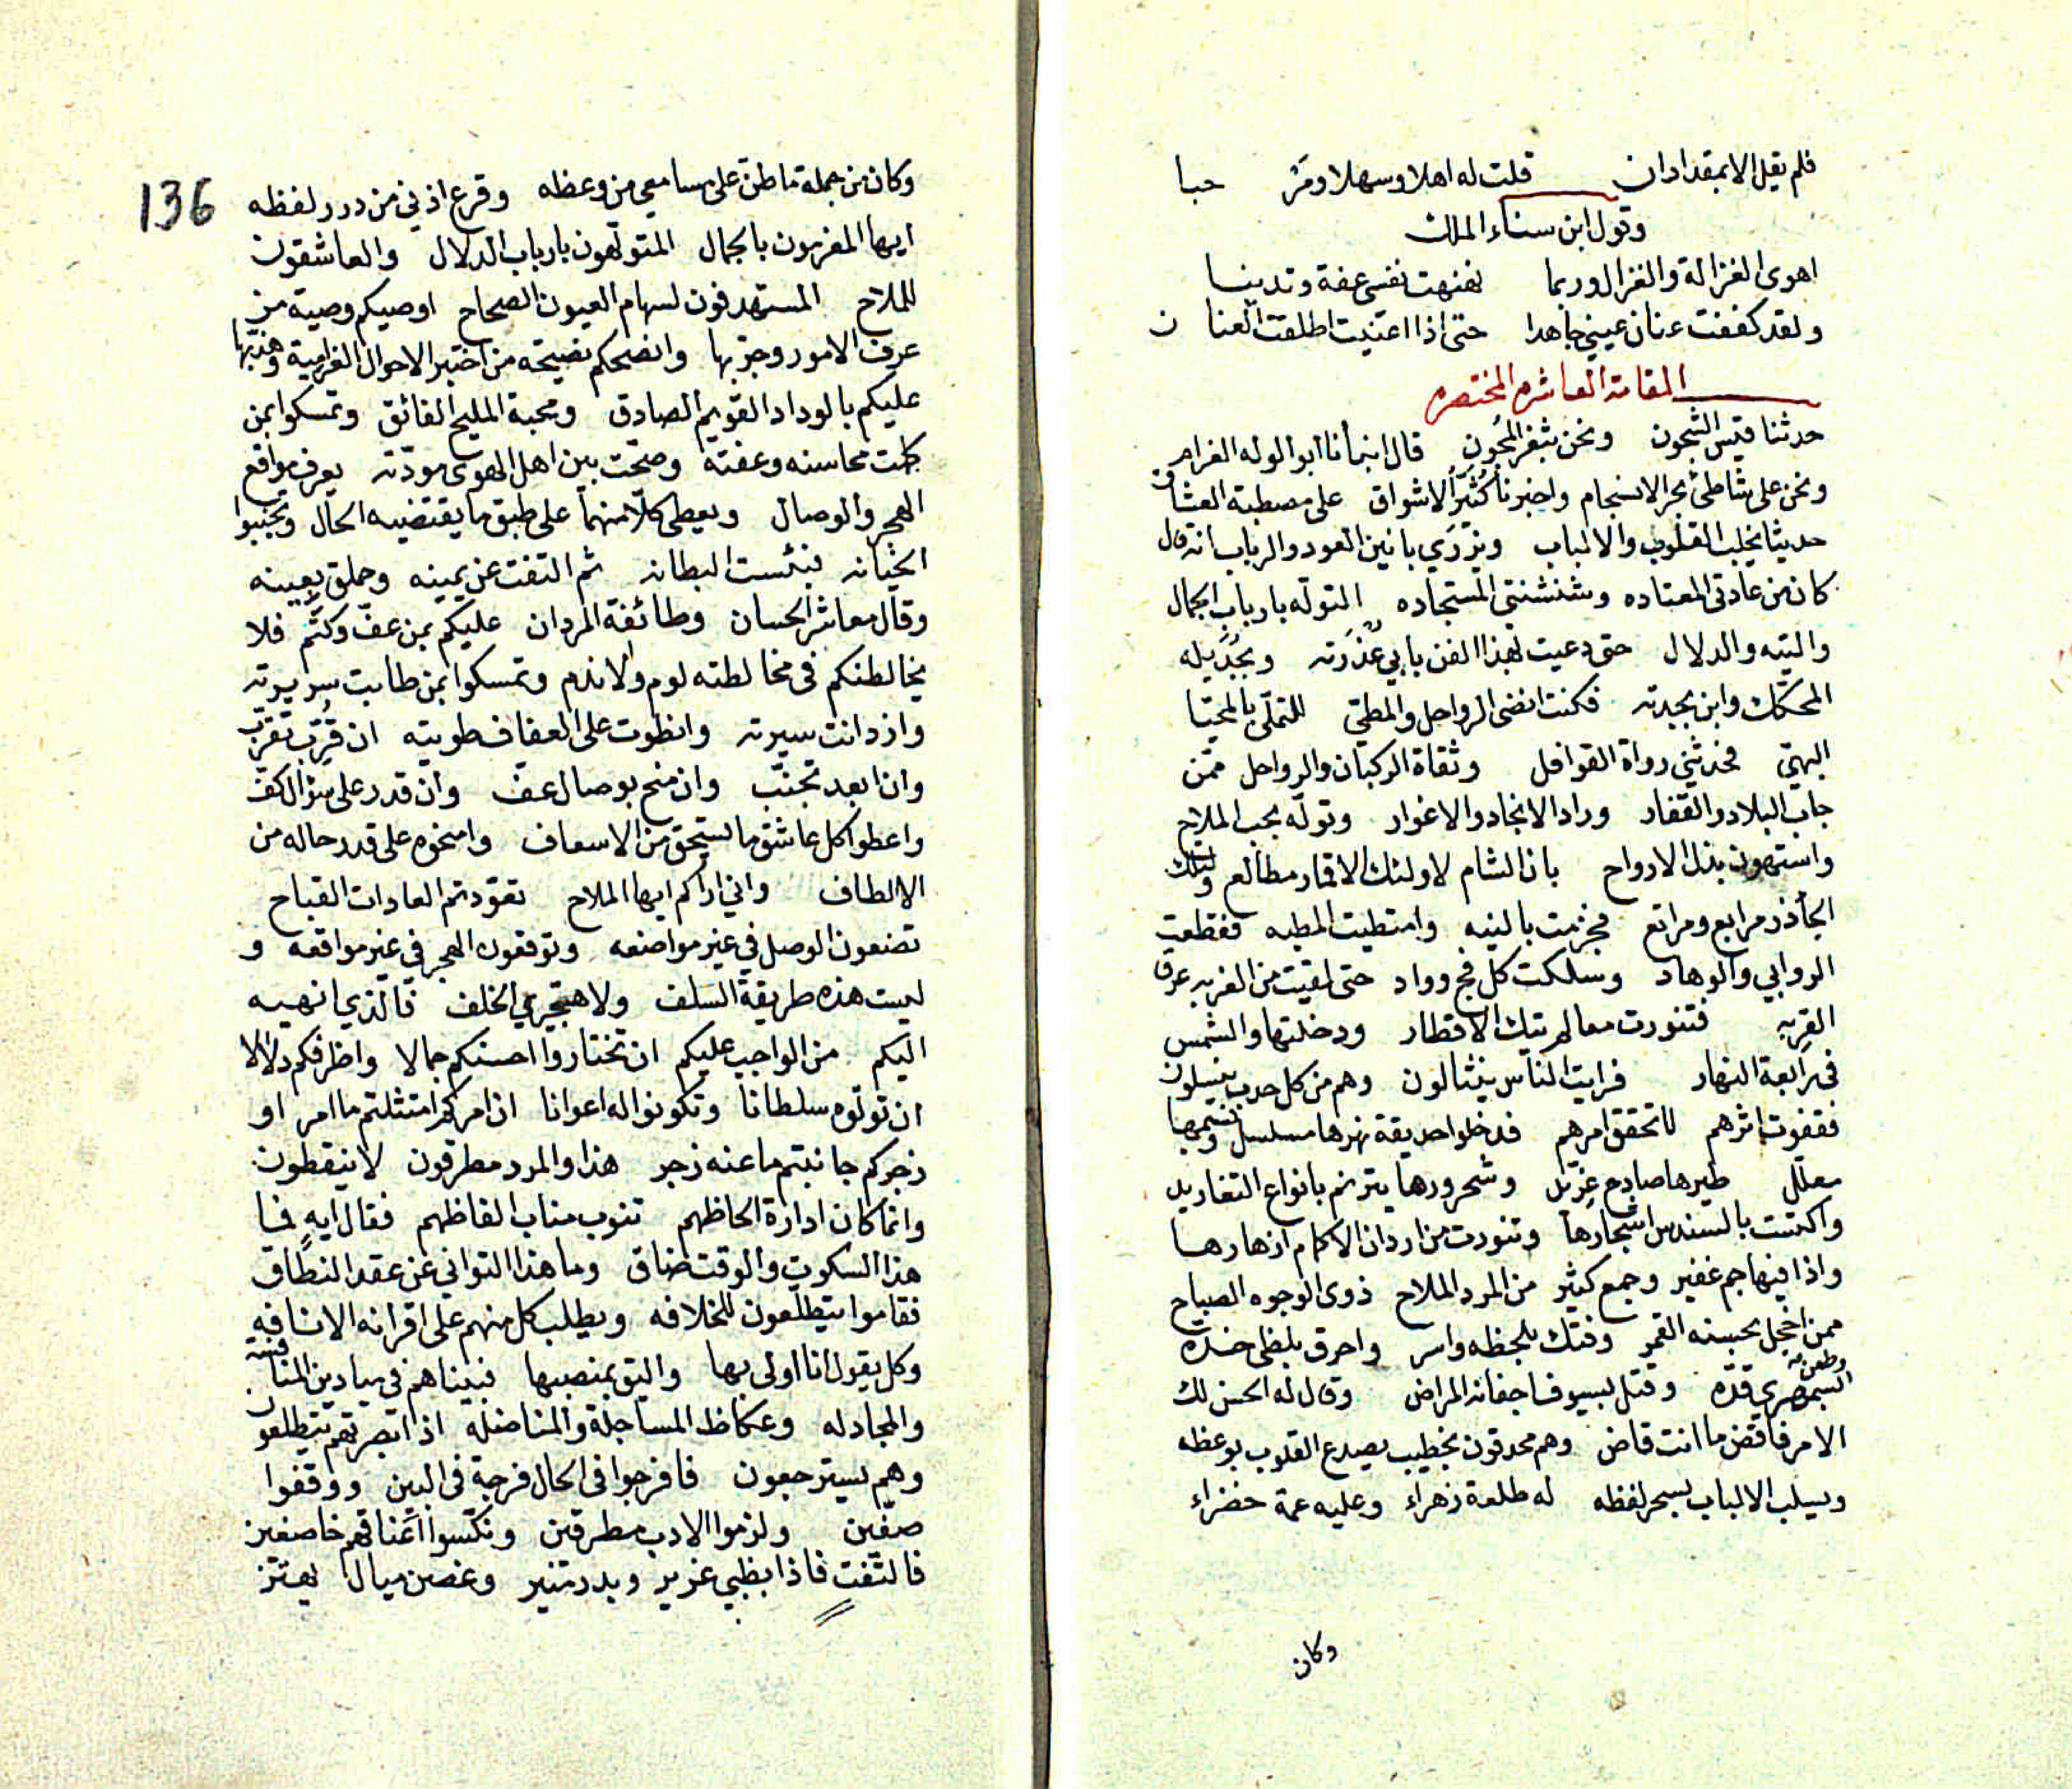 فلم يقل الا بمقدار ان قلت له اهلا وسهلا ومر حبا
وقول ابن سناء الملك
اهوى الغزالة والغزال وربما نهنهت نفسى عفة وتدينا
ولقد كففت عنان عيني جاهدا حتى اذا اعييت اطلقت العنا ن
المقامة العاشره المختصره
حدثنا قيس الشجون ونحن بثغر المجون قال انبأنا ابو الوله الغرام
ونحن على شاطئ بحر الانسجام واخبرنا كثيّر الاشواق على مصطبة العشاق
حديثا يخلب القلوب والالباب ويزري بانين العود والرباب انه قال
كان من عادتى المعتاده وشنشنتي المستجاده التوله بارباب الجمال
والتيه والدلال حتى دعيت لهذا الفن بابي عذرته وبجذيله
المحكك وابن بجدته فكنت انضى الرواحل والمطيّ للتملّى بالمحيا
البهيّ فحدثني رواة القوافل وثقاة الركبان والرواحل ممّن
جاب البلاد والقفار وراد الانجاد والاغوار وتولّه بحب الملاح
واستهون بذل الارواح بان الشام لاولئك الاقمار مطالع ولتلك
الجأذر مرابع ومراتع فجزمت بالنيه وامتطيت المطيه فقطعت
الروابي والوهاد وسلكت كل فج وواد حتى لقيت من الغربه عرق
القربه فتنورت معالم تيك الاقطار ودخلتها والشمس
في رابعة النهار فرايت الناس ينثالون وهم من كل حدب ينسلون
فقفوت اثرهم لاتحقق امرهم فدخلوا حديقة نهرها مسلسل ونسيمها
معلّل طيرها صادح غرّيد وشحرورها يترنم بانواع التغاريد
واكتست بالسندس اشجارها وتنورت من اردان الاكمام ازهارها
واذا فيها جم غفير وجمع كثير من المرد الملاح ذوى الوجوه الصباح
ممن اخجل بحسنه القمر وفتك بلحظه واسر واحرق بلظى خده وطعن
بسمهري قدّه وقتل بسيوف اجفانه المراض وقال له الحسن لك
الامر فاقض ما انت قاض وهم محدقون بخطيب يصدع القلوب بوعظه
ويسلب الالباب بسحر لفظه له طلعة زهراء وعليه عمة خضراء
وكان
136
وكان من جملة ما طن على مسامعي من وعظه وقرع اذني من درر لفظه
ايها المغرمون بالجمال المتولهون بارباب الدلال والعاشقون
للملاح المستهدفون لسهام العيون الصحاح اوصيكم وصية من
عرف الامور وجربها وانصحكم نصيحة من اختبر الاحوال الغرامية وهذبها
عليكم بالوداد القويم الصادق ومحبة المليح الفائق وتمسكوا بمن
كملت محاسنه وعفته وصحّت بين اهل الهوى مودّته يعرف مواقع
الهجر والوصال ويعطى كلّا منهما على طبق ما يقتضيه الحال وتجنبوا
الخيانه فبئست البطانه ثم التفت عن يمينه وحملق بعينه
وقال معاشر الحسان وطائفة المردان عليكم بمن عفّ وكتم فلا
يخالطنكم فى مخالطته لوم ولا ندم وتمسكوا بمن طابت سريرته
وازدانت سيرته وانطوت على العفاف طويته ان قُرّب تقرّب
وان ابعد تجنّب وان منح بوصال عف وان قدر على نوال كف
واعطوا كل عاشق ما يستحق من الاسعاف وامنحوه على قدر حاله من
الالطاف واني اراكم ايها الملاح تعودتم العادات القباح
تضعون الوصل في غير مواضعه وتوقعون الهجر في غير مواقعه و
ليست هذه طريقة السلف ولا هجيري الخلف فالذي انهيه
اليكم من الواجب عليكم ان تختاروا احسنكم جمالا واظرفكم دلالا
ان تولوه سلطانا وتكونوا له اعوانا ان امركم امتثلتم ما امر او
زجركم جانبتم ما عنه زجر هذا والمرد مطرقون لا ينقطون
وانما كان ادارة الحاظهم تنوب مناب الفاظهم فقال ايهٍ فما
هذا السكوت والوقت ضاق وما هذا التواني عن عقد النطاق
فقاموا يتطلعون للخلافه ويطلب كل منهم على اقرانه الانافه
وكل يقول انا اولى بها واليق بمنصبها فبينا هم في ميادين المنافسه
والمجادله وعكاظ المساجلة والمناضله اذ ابصرتهم يتطلعون
وهم يسترجعون فافرجوا فى الحال فرجة فى البين ووقفوا
صفّين ولزموا الادب مطرقين ونكّسوا اعناقهم خاضعين
فالتفت فاذا بظبي غرير وبدر منير وغصن ميال يهتز